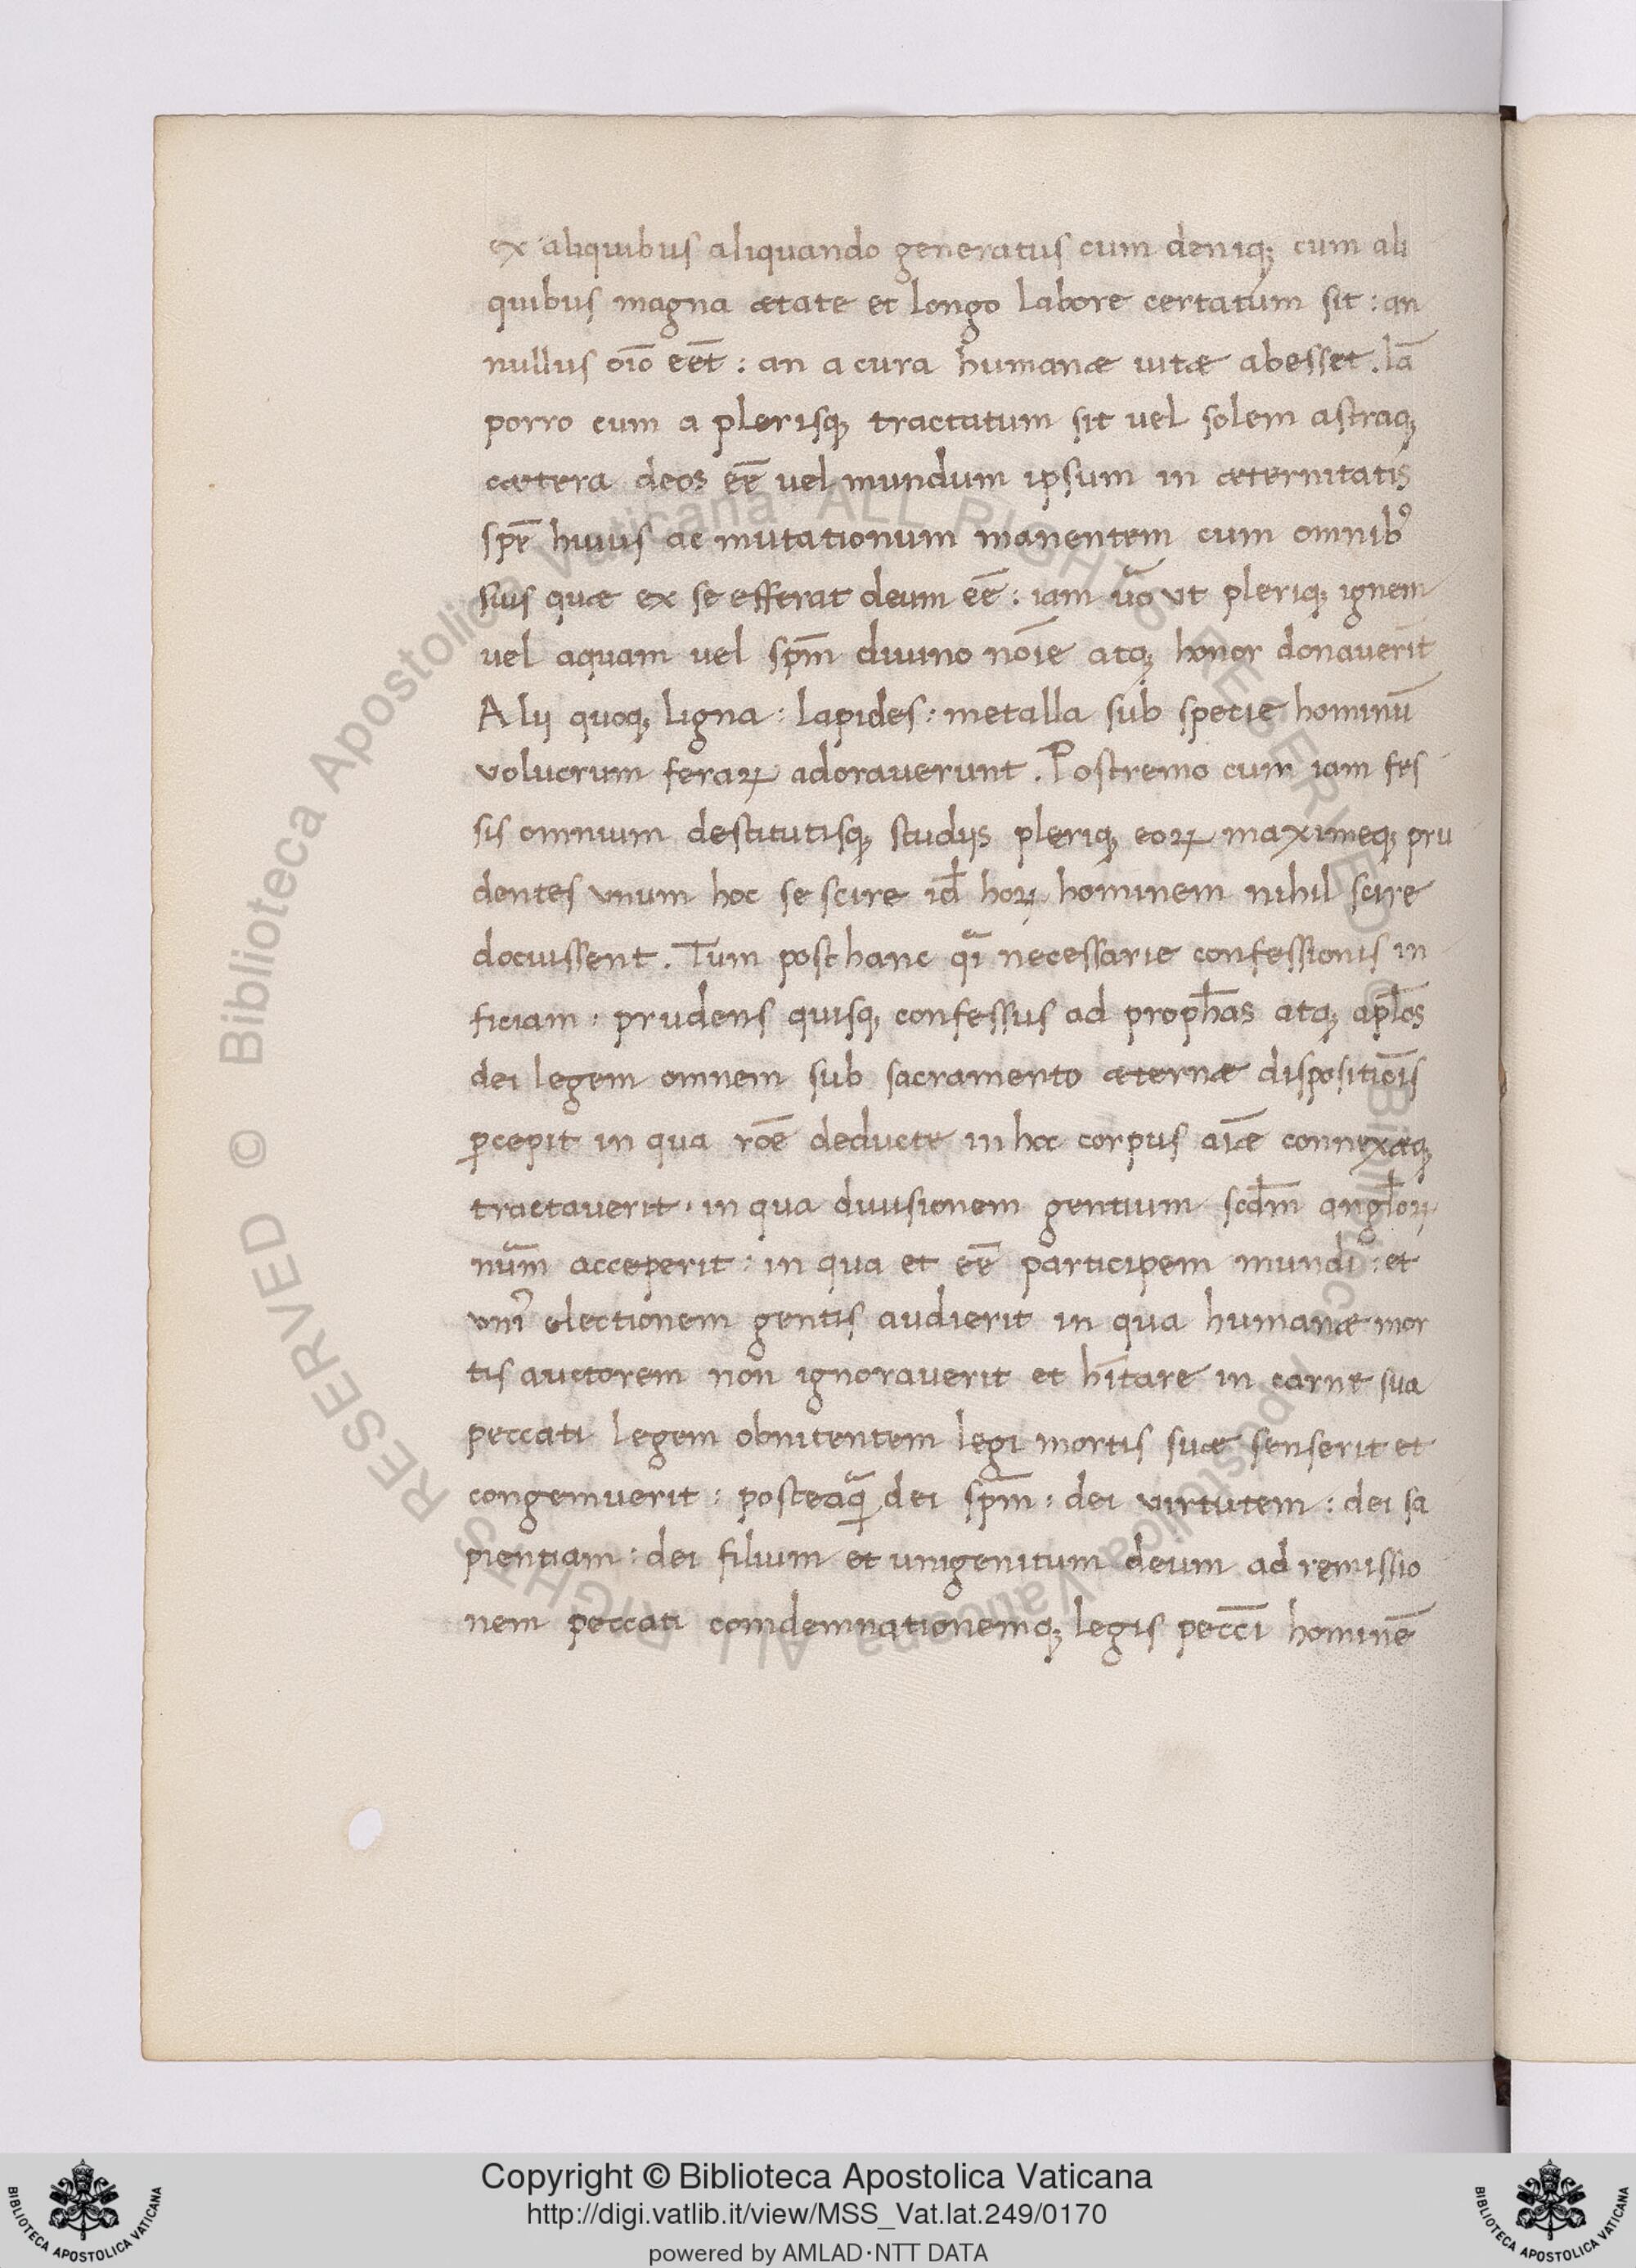 ex aliquibus aliquando generatus cum deniq; cum ali
quibus magna ætate et longo labore certatum sit : an
nullus oīo eēt : an a cura humanæ uitæ abesset . Iā
porro cum a plerisq; tractatum sit vel solem astraq;
cætera deos eē vel mundum ipsum in æternitatis
spē huius ac mutationum manentem cum omnibꝰ
suis quæ ex se efferat deum eē : iam ūo vt pleriq; ignem
vel aquam vel spm̄ diuino noīe atq; honor donauerit
Alij quoq; ligna : lapides : metalla sub specie hominū
volucrum feraꝝ adorauerunt . Postremo cum iam fes
sis omnium destitutisq; studijs pleriq; eoꝝ maximeq; pru
dentes vnum hoc se scire id̄ hoꝝ hominem nihil scire
docuissent . Tum post hanc necessarie confessionis in
ficiam : prudens quisq; confessus ad proph̄as atq; apl̄os
dei legem omnem sub sacramento æternæ dispositiōis
ꝑcepit in qua rōe deducte in hoc corpus aīæ connexæq;
tractauerit : in qua diuisionem gentium scd̄m angl̄oꝝ
nūm acceperit : in qua et eē participem mundi : et
electionem gentis audierit in qua humanæ mor
tis auctorem non ignorauerit et hītare in carne sua
peccati legem obnitentem legi mortis suæ senserit et
congemuerit : posteaꝙ̄ dei spm̄ : dei virtutem : dei sa
pientiam : dei filium et unigenitum deum ad remissio
nem peccati comdemnationemq; legis peccī hominē
Copyright © Biblioteca Apostolica Vaticana
http://digi.vatlib.it/view/MSS_Vat.lat.249/0170
powered by AMLAD·NTT DATA
BIBLIOTECA APOSTOLICA VATICANA
BIBLIOTECA APOSTOLICA VATICANA
© Biblioteca Apostolica Vaticana ALL RIGHTS RESERVED © Biblioteca Apostolica Vaticana ALL RIGHTS RESERVED